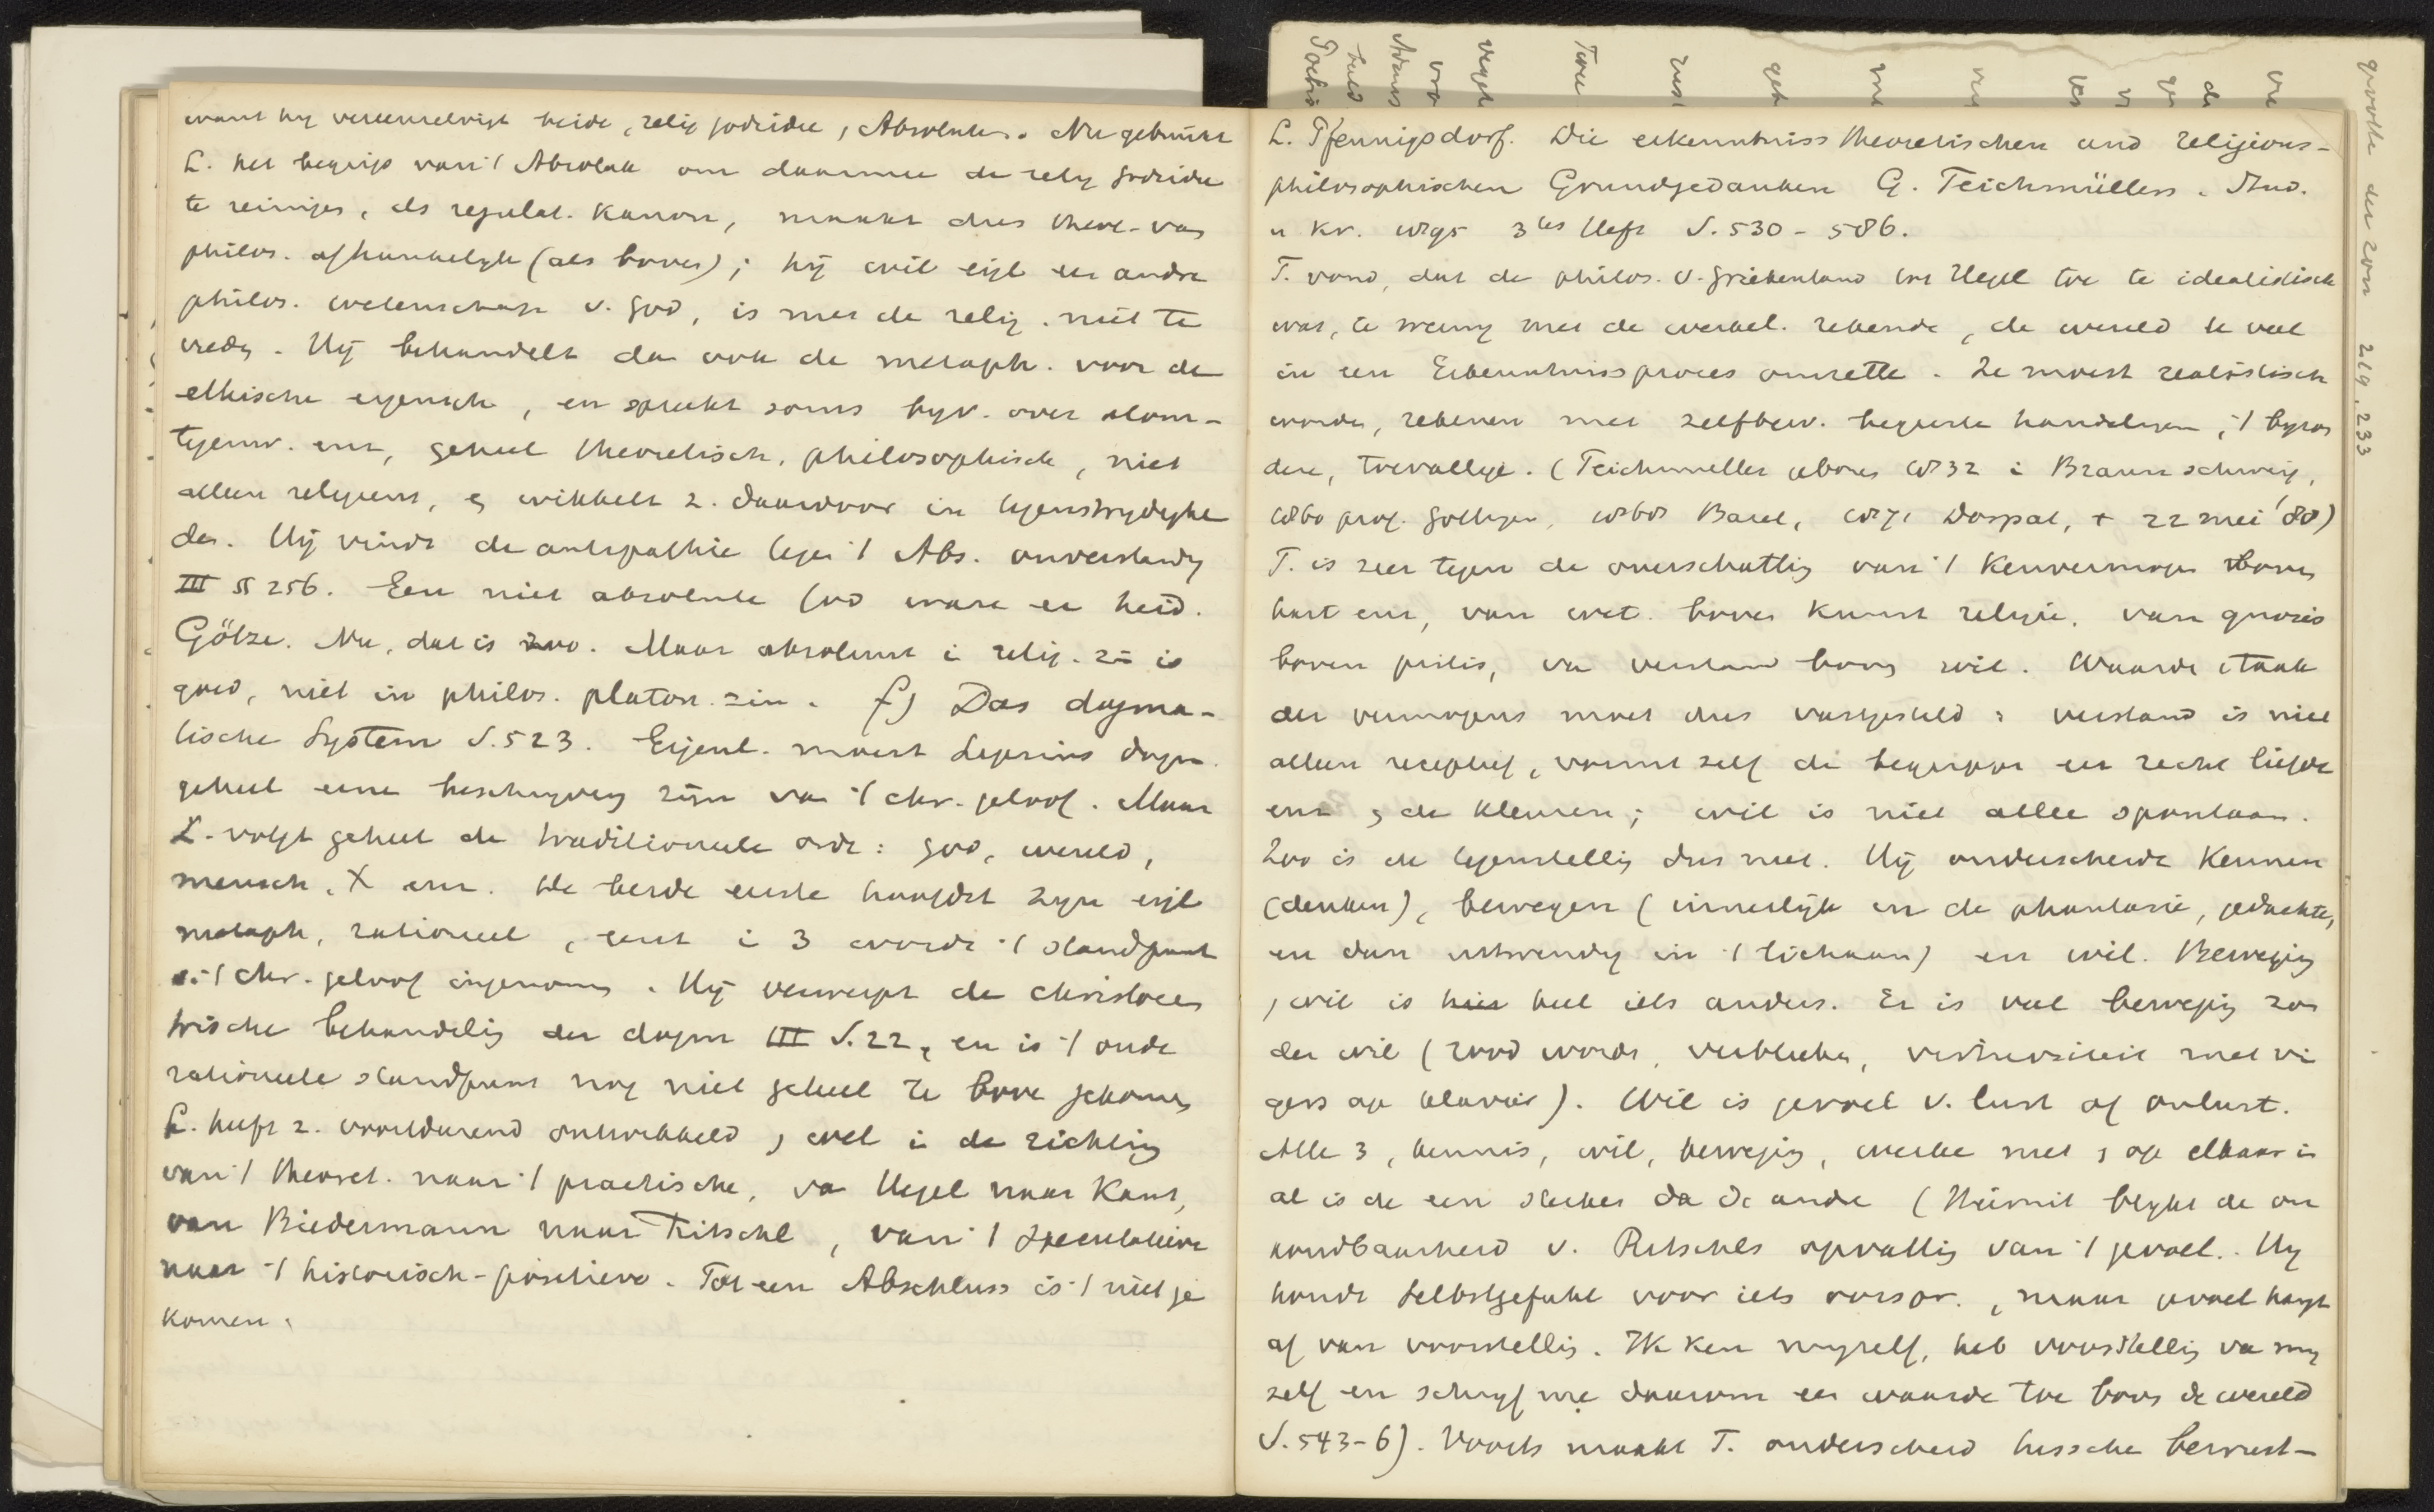 want hij vereenzelvigt beide, relig godsidee, Absolutes. Nu gebruikt
L. het begrip van 't Absolute om daarmee de relig godsidee
te reinigen, als regulat. Kanon, maakt dus theol. van
philos. afhankelijk (als boven); hij wil eigl een andre
philos. wetenschap v. God, is met de relig. niet te
vreden. Hij behandelt dan ook de metaph. voor de
ethische eigensch, en spreekt soms byv. over alom-
tegenw. enz, geheel theoretisch, philosophisch, niet
alleen religieus, en wikkelt z. daardoor in tegenstrydighe
den. Hij vindt de antipathie tegen 't Abs. onverstandig
III § 256. Een niet absolute God ware een heid.
Götze. Nu, dat is zoo. Maar absoluut in relig. zin is
goed, niet in philos. platon. zin. f) Das dogma-
tische System S. 523. Eigenl. moest Lipsius dogm.
geheel eene beschryving zijn van 't chr. geloof. Maar
L. volgt geheel de traditioneele orde: God, wereld,
mensch, X enz. De beide eerste hoofdst zyn eigl
metaph, rationeel, eerst in 3 wordt 't standpunt
v. 't chr. geloof ingenomen. Hij verwerpt de christocen
trische behandeling der dogm III S. 22, en is 't oude
rationeele standpunt nog niet geheel te boven gekomen
L. heeft z. voortdurend ontwikkeld, wel in de richting
van 't theoret. naar 't practische, van Hegel naar Kant,
van Biedermann naar Ritschl, van 't speculatieve
naar 't historisch-positieve. Tot een Abschluss is 't niet ge
komen.
L. Pfennigsdorf. Die erkenntniss theoretischen und religions-
philosophischen Grundgedanken G. Teichmüllers. Stud.
u Kr. 1895 3tes Heft S. 530 - 586.
T. vond, dat de philos. v. Griekenland tot Hegel toe te idealistisch
was, te weinig met de werkel. rekende, de wereld te veel
in een Erkenntnissproces omzette. Ze moest realistisch
worden, rekenen met zelfbew. begeerte handelingen, 't byzon
dere, toevallige. (Teichmüller geboren 1832 in Braunschweig,
1860 prof. Gottingen, 1868 Basel, 1871 Dorpat, + 22 mei '88)
T. is zeer tegen de overschatting van 't Kenvermogen boven
hart enz, van wet. boven Kunst religie, van gnosis
boven pistis, van verstand boven wil. Waarde en taak
der vermogens moet dus vastgesteld: verstand is niet
alleen receptief, vormt zelf de begrippen en recht liefde
enz en de kleuren; wil is niet alleen spontaan.
Zoo is de tegenstelling dus niet. Hij onderscheidt Kennen
(denken), bewegen (innerlijk in de phantasie, gedachte,
en dan uitwendig in 't lichaam) en wil. Beweging
en wil is heel iets anders. Er is veel beweging zon
der wil (rood worden, verbleken, virtuositeit met vi
gers op klavier). Wil is gevoel v. lust of onlust.
Alle 3, kennis, wil, beweging, werken met en op elkaar in
al is de een sterker dan de andere (Hieruit blykt de on
houdbaarheid v. Ritschls opvatting van 't gevoel. Hy
houdt Selbstgefühl voor iets oorspr., maar gevoel hangt
af van voorstelling. Ik ken myself, heb voorstelling van my
zelf en schryf me daarom een waarde toe boven de wereld
S. 543-6). Voorts maakt T. onderscheid tussche bewust-
grootte der zon 219, 233